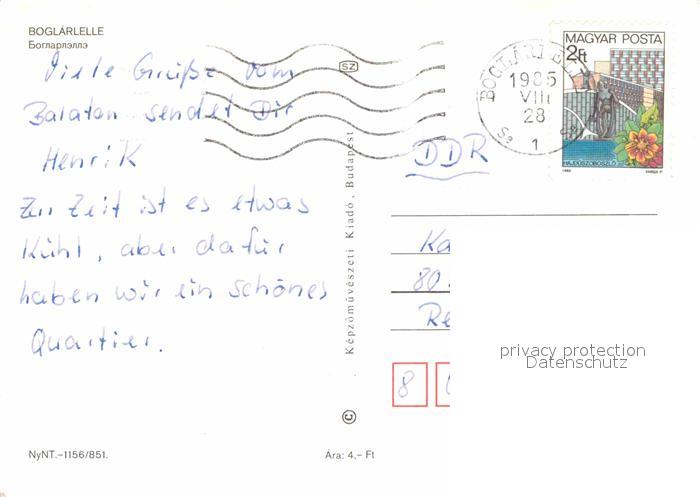 BOGLÁRLELLE
Богларлэллэ
Viele Grüße vom
Balaton sendet Dir
Henrik
Zur Zeit ist es etwas
kühl, aber dafür
haben wir ein schönes
Quartier.
NyNT.–1156/851.
Ára: 4,– Ft
Képzőművészeti Kiadó, Budapest
©
SZ
1985
VIII
28
1
MAGYAR POSTA
2Ft
HAJDÚSZOBOSZLÓ
DDR
Ka
80
Re
8
privacy protection
Datenschutz